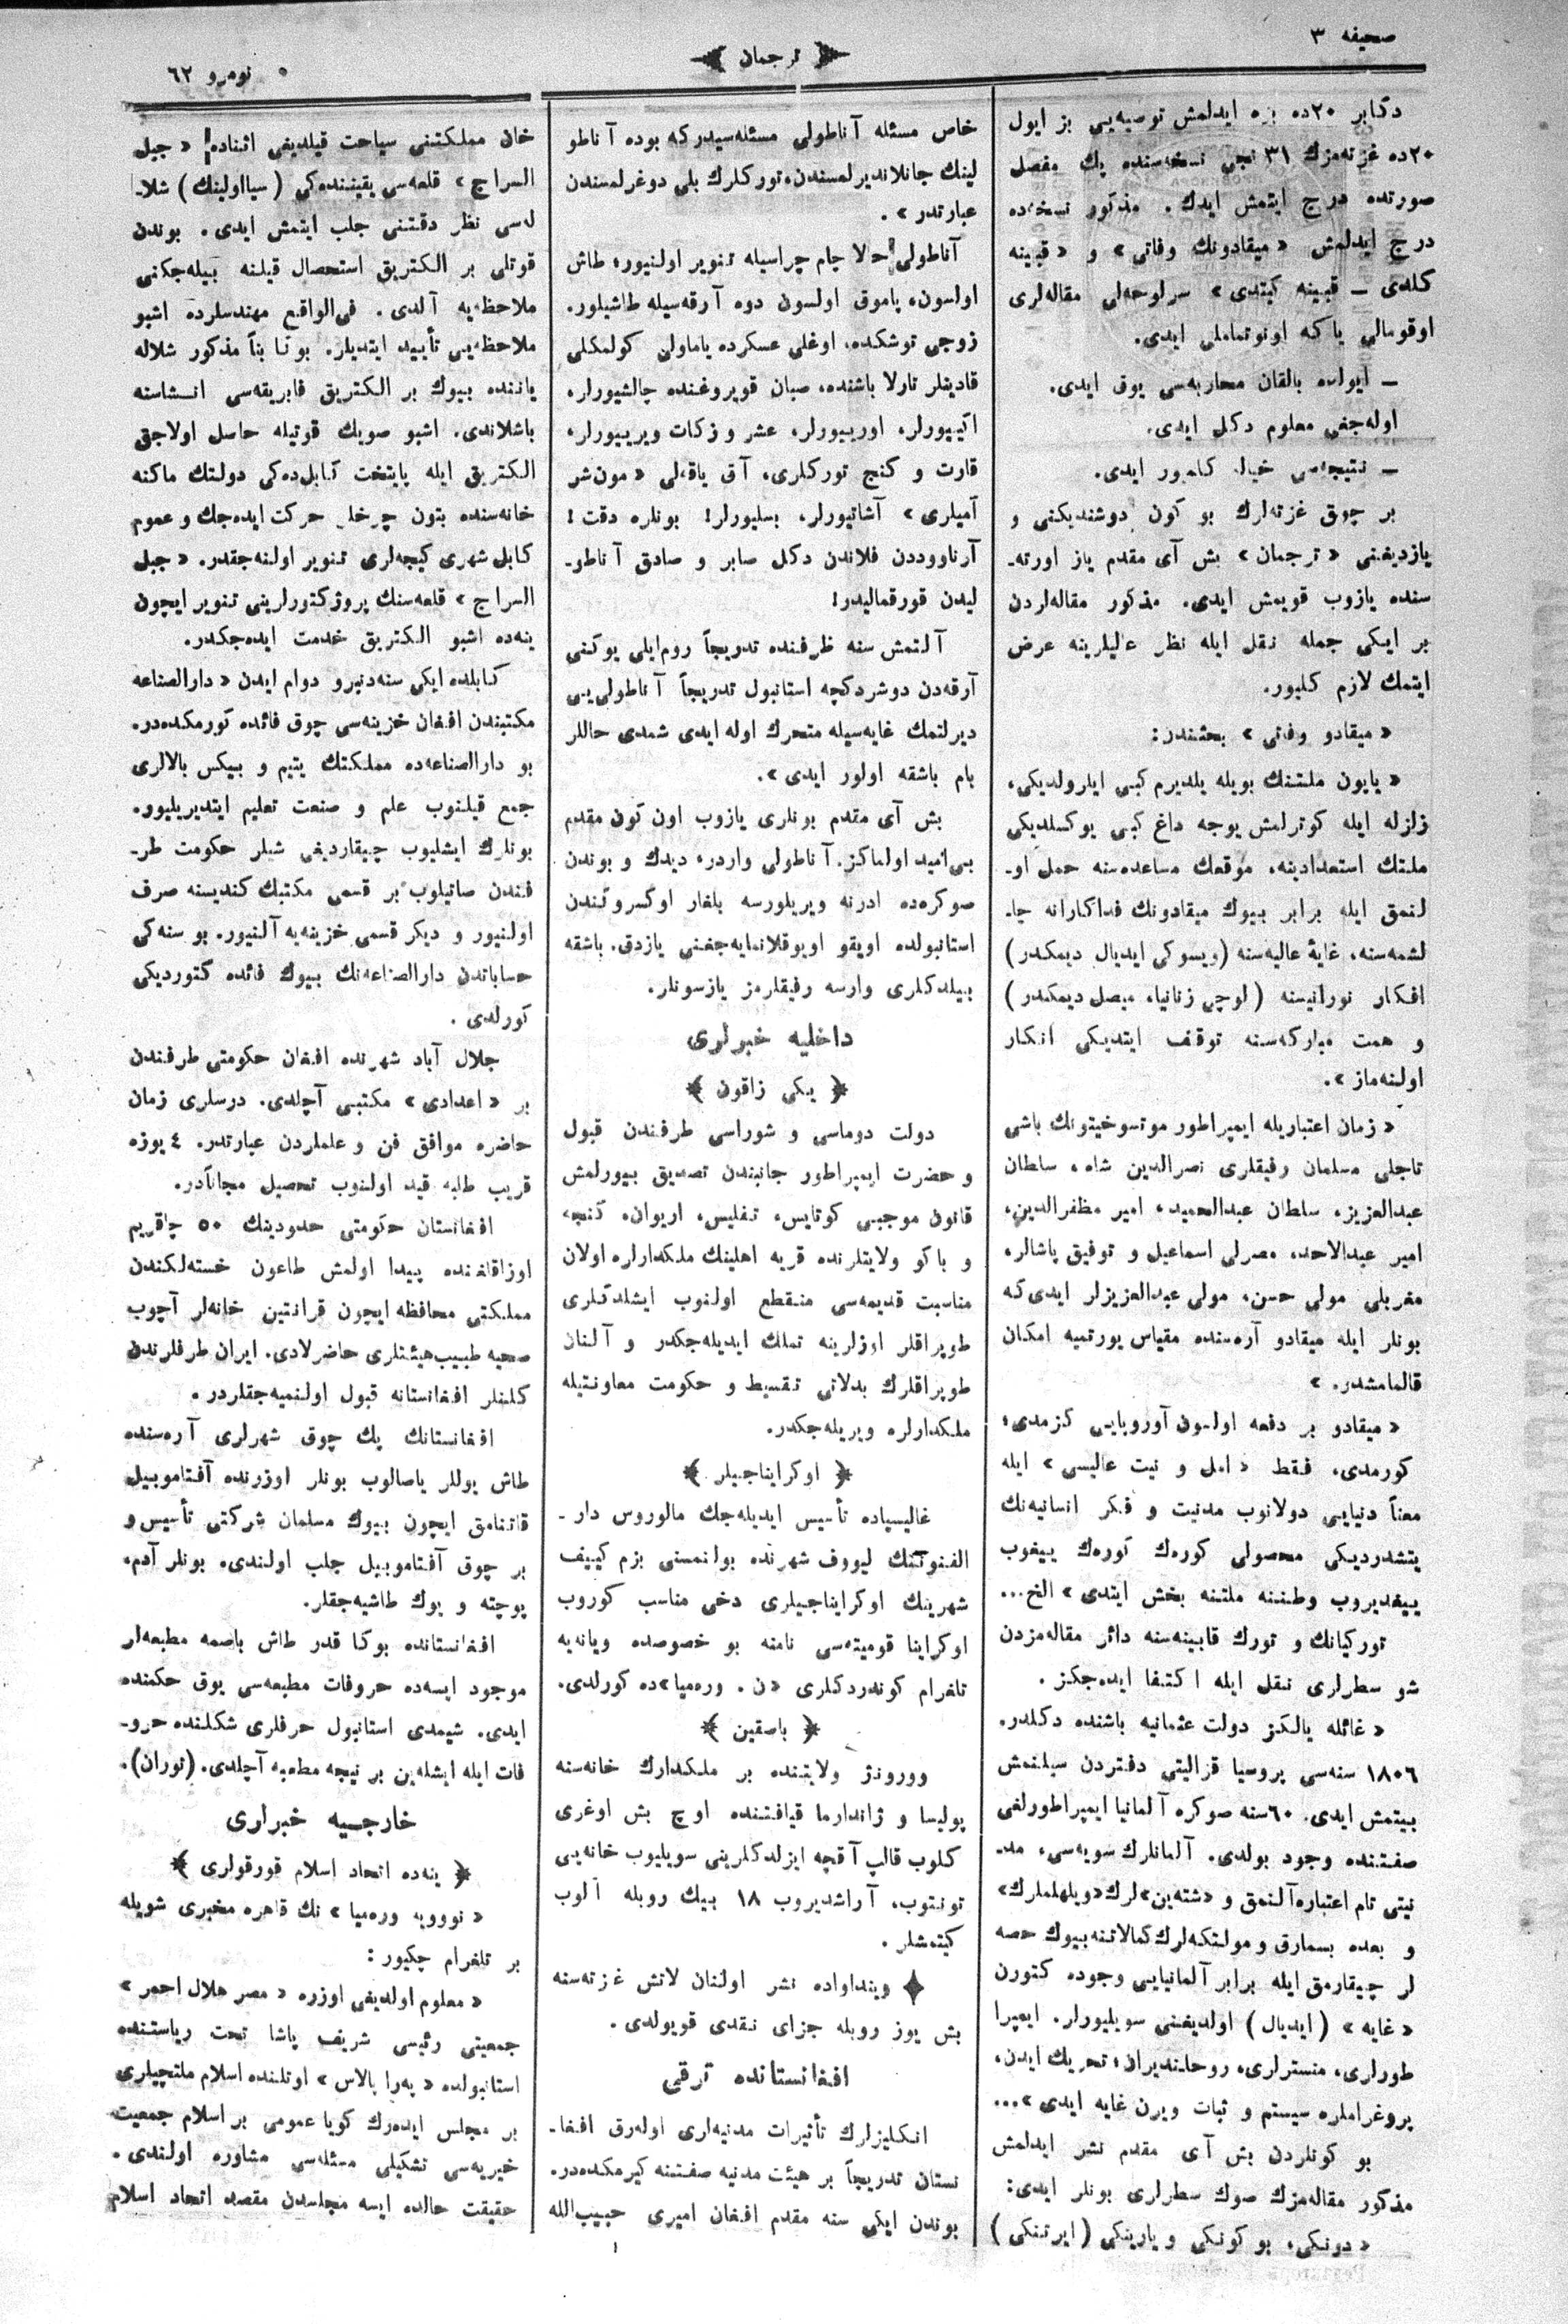 صحیفه ۳
ترجمان
نومرو ٦٢
دکابر ۲۰ده بزه ایدلمش توصیه‌یی بز ایول
۲۰ده غزته‌مزك ۳۱ نجی نسخه‌سنده پك مفصل
صورتده درج ایتمش ایدك. مذکور نسخه‌ده
درج ایدلمش «میقادونك وفاتی» و «قبینه
کلدی — قبینه کیتدی» سرلوحه‌لی مقاله‌لری
اوقومالی یاکه اونوتماملی ایدی.
— ایولده بالقان محاربه‌سی یوق ایدی.
اوله‌جغی معلوم دکل ایدی.
— نتیجه‌سی خیاله کلمیور ایدی.
بر چوق غزته‌لرك بو کون دوشندیکنی و
یازدیغنی «ترجمان» بش آی مقدم یاز اورته‌-
سنده یازوب قویمش ایدی. مذکور مقاله‌لردن
بر ایکی جمله نقل ایله نظر عالیلرینه عرض
ایتمك لازم کلیور.
«میقادو وفاتی» بحثندن:
«یاپون ملتنك بویله یلدیرم کبی ایلرولدیکی،
زلزله ایله کوترلمش یوجه داغ کبی یوکسلدیکی
ملتك استعدادینه، موقعك مساعده‌سنه حمل او-
لنمق ایله برابر بیوك میقادونك فداکارانه چا-
لشمه‌سنه، غایهٔ عالیه‌سنه (ویسوکی ایدیال دیمکدر)
افکار نورانیسنه (لوچی زنانیا، میصل دیمکدر)
و همت مبارکه‌سنه توقف ایتدیکی انکار
اولنه‌ماز».
«زمان اعتباریله ایمپراطور موتسوخیتونك باشی
تاجلی مسلمان رفیقلری نصرالدین شاه، سلطان
عبدالعزیز، سلطان عبدالحمید، امیر مظفرالدین،
امیر عبدالاحد، مصرلی اسماعیل و توفیق پاشالر،
مغربلی مولی حسن، مولی عبدالعزیزلر ایدی که
بونلر ایله میقادو آره‌سنده مقیاس یورتمیه امکان
قالمامشدر.»
«میقادو بر دفعه اولسون آوروپایی کزمدی،
کورمدی، فقط «امل و نیت عالیسی» ایله
معناً دنیایی دولانوب مدنیت و فکر انسانیه‌نك
یتشدردیکی محصولی کوره‌ك کوره‌ك ییغوب
ییغدیروب وطننه ملتنه بخش ایتدی» الخ...
تورکیانك و تورك قابینه‌سنه دائر مقاله‌مزدن
شو سطرلری نقل ایله اکتفا ایده‌جکز.
«غائله یالکز دولت عثمانیه باشنده دکلدر.
۱۸۰٦ سنه‌سی پروسیا قزالیتی دفتردن سیلنمش
بیتمش ایدی. ٦۰ سنه صوکره آلمانیا ایمپراطورلغی
صفتنده وجود بولدی. آلمانلرك سویه‌سی، مد-
نیتی تام اعتباره آلنمق و «شته‌ین»لرك «ویلهلملرك»
و بعده بسمارق و مولتکه‌لرك کمالاتنه بیوك حصه
لر چیقارمق ایله برابر آلمانیایی وجوده کتورن
«غایه» (ایدیال) اولدیغنی سویلیورلر. ایمپرا
طورلری، منسترلری، روحلندیران؛ تحریك ایدن،
پروغراملره سیستم و ثبات ویرن غایه ایدی»...
بو کونلردن بش آی مقدم نشر ایدلمش
مذکور مقاله‌مزك صوك سطرلری بونلر ایدی:
«دونکی، بو کونکی و یارینکی (ایرتنکی)
خاص مسئله آناطولی مسئله‌سیدر که بوده آناطو
لینك جانلاندیرلمسندن، تورکلرك بلی دوغرلمسندن
عبارتدر».
آناطولی حالا چام چراسیله تنویر اولنیور؛ طاش
اولسون، پاموق اولسون دوه آرقه‌سیله طاشیلور.
زوجی توشکده، اوغلی عسکرده یاماولی کولمکلی
قادینلر تارلا باشنده، صبان قویروغنده چالشیورلر،
اکیپورلر، اوریپورلر، عشر و زکات ویرییورلر،
قارت و کنج تورکلری، آق یاقه‌لی «مون‌شر
آمیلری» آشاتیورلر، بسلیورلر! بونلره دقت!
آرناووددن فلاندن دکل صابر و صادق آناطو-
لیدن قورقمالیدر!
آلتمش سنه ظرفنده تدریجاً روم‌ایلی یوکنی
آرقه‌دن دوشردکچه استانبول تدریجاً آناطولی‌یی
دیرلتمك غایه‌سیله متحرك اوله ایدی شمدی حاللر
بام باشقه اولور ایدی».
بش آی مقدم بونلری یازوب اون کون مقدم
بی‌امید اولماکز. آناطولی واردر، دیدك و بوندن
صوکره‌ده ادرنه ویریلورسه بلغار اوکسروکندن
استانبولده اویقو اویوقلانمایه‌جغنی یازدق. باشقه
بیلدکلری وارسه رفیقلرمز یازسونلر.
داخلیه خبرلری
یکی زاقون
دولت دوماسی و شوراسی طرفندن قبول
و حضرت ایمپراطور جانبندن تصدیق بیورلمش
قانون موجبی کوتایس، تفلیس، اریوان، کنجه،
و باکو ولایتلرنده قریه اهلینك ملکدارلره اولان
مناسبت قدیمه‌سی منقطع اولنوب ایشلدکلری
طوپراقلر اوزلرینه تملك ایدیله‌جکدر و آلنان
طوپراقلرك بدلاتی تقسیط و حکومت معاونتیله
ملکدارلره ویریله‌جکدر.
اوکراینا‌جیلر
غالیسیاده تأسیس ایدیله‌جك مالوروس دار-
الفنوننك لیووف شهرنده بولنمسنی بزم کییف
شهرینك اوکراینا‌جیلری دخی مناسب کوروب
اوکراینا قومیته‌سی نامنه بو خصوصده ویانه‌یه
تلغرام کوندردکلری «ن. وره‌میا»ده کورلدی.
باصقین
وورونژ ولایتنده بر ملکدارك خانه‌سنه
پولیسا و ژاندارما قیافتنده اوچ بش اوغری
کلوب قالپ آقچه ایزلدکلرینی سویلیوب خانه‌یی
تونتوب، آراشدیروب ۱۸ بیك روبله آلوب
کیتمشلر.
وینداواده نشر اولنان لاتش غزته‌سنه
بش یوز روبله جزای نقدی قویولدی.
افغانستانده ترقی
انکلیزلرك تأثیرات مدنیه‌لری اوله‌رق افغا-
نستان تدریجاً بر هیئت مدنیه صفتنه کیرمکده‌در.
بوندن ایکی سنه مقدم افغان امیری حبیب‌الله
خان مملکتنی سیاحت قیلدیغی اثناده «جبل
السراج» قلعه‌سی یقیننده‌کی (سیااولینك) شلا-
له‌سی نظر دقتنی جلب ایتمش ایدی. بوندن
قوتلی بر الکتریق استحصال قیلنه بیله‌جکنی
ملاحظه‌یه آلدی. فی‌الواقع مهندسلرده اشبو
ملاحظه‌یی تأیید ایتدیلر. بوکا بناً مذکور شلاله
یاننده بیوك بر الکتریق فابریقه‌سی انشاسنه
باشلاندی. اشبو صویك قوتیله حاصل اولاجق
الکتریق ایله پایتخت کابل‌ده‌کی دولتك ماکنه
خانه‌سنده بتون چرخلر حرکت ایده‌جك و عموم
کابل شهری کیجه‌لری تنویر اولنه‌جقدر. «جبل
السراج» قلعه‌سنك پروژکتورلرینی تنویر ایچون
ینه‌ده اشبو الکتریق خدمت ایده‌جکدر.
کابلده ایکی سنه‌دنبرو دوام ایدن «دارالصناعه
مکتبندن افغان خزینه‌سی چوق فائده کورمکده‌در.
بو دارالصناعه‌ده مملکتك یتیم و بیکس بالالری
جمع قیلنوب علم و صنعت تعلیم ایتدیریلیور.
بونلرك ایشلیوب چیقاردیغی شیلر حکومت طر-
فندن صاتیلوب بر قسمی مکتبك کندیسنه صرف
اولنیور و دیکر قسمی خزینه‌یه آلنیور. بو سنه‌کی
حساباتدن دارالصناعه‌نك بیوك فائده کتوردیکی
کورلدی.
جلال آباد شهرنده افغان حکومتی طرفندن
بر «اعدادی» مکتبی آچلدی. درسلری زمان
حاضره موافق فن و علملردن عبارتدر. ٤ یوزه
قریب طلبه قید اولنوب تحصیل مجاناًدر.
افغانستان حکومتی حدودینك ٥۰ چاقریم
اوزاقلغنده پیدا اولمش طاعون خسته‌لکندن
مملکتی محافظه ایچون قرانتین خانه‌لر آچوب
صحیه طبیب هیئتلری حاضرلادی. ایران طرفلرندن
کلنلر افغانستانه قبول اولنمیه‌جقلردر.
افغانستانك پك چوق شهرلری آره‌سنده
طاش یوللر یاصالوب بونلر اوزرنده آفتاموبیل
قاتنامق ایچون بیوك مسلمان شرکتی تأسیس و
بر چوق آفتاموبیل جلب اولندی. بونلر آدم،
پوچته و یوك طاشیه‌جقلر.
افغانستانده بوکا قدر طاش باصمه مطبعه‌لر
موجود ایسه‌ده حروفات مطبعه‌سی یوق حکمنده
ایدی. شیمدی استانبول حرفلری شکلنده حرو-
فات ایله ایشله‌ین بر نیجه مطبعه آچلدی. (توران).
خارجیه خبرلری
ینه‌ده اتحاد اسلام قورقولری
«نووویه وره‌میا» نك قاهره مخبری شویله
بر تلغرام چکیور:
«معلوم اولدیغی اوزره «مصر هلال احمر»
جمعیتی رئیسی شریف پاشا تحت ریاستنده
استانبولده «په‌را پالاس» اوتلنده اسلام ملتچیلری
بر مجلس ایده‌رك کویا عمومی بر اسلام جمعیت
خیریه‌سی تشکیلی مسئله‌سی مشاوره اولندی.
حقیقت حالده ایسه مجلسدن مقصد اتحاد اسلام